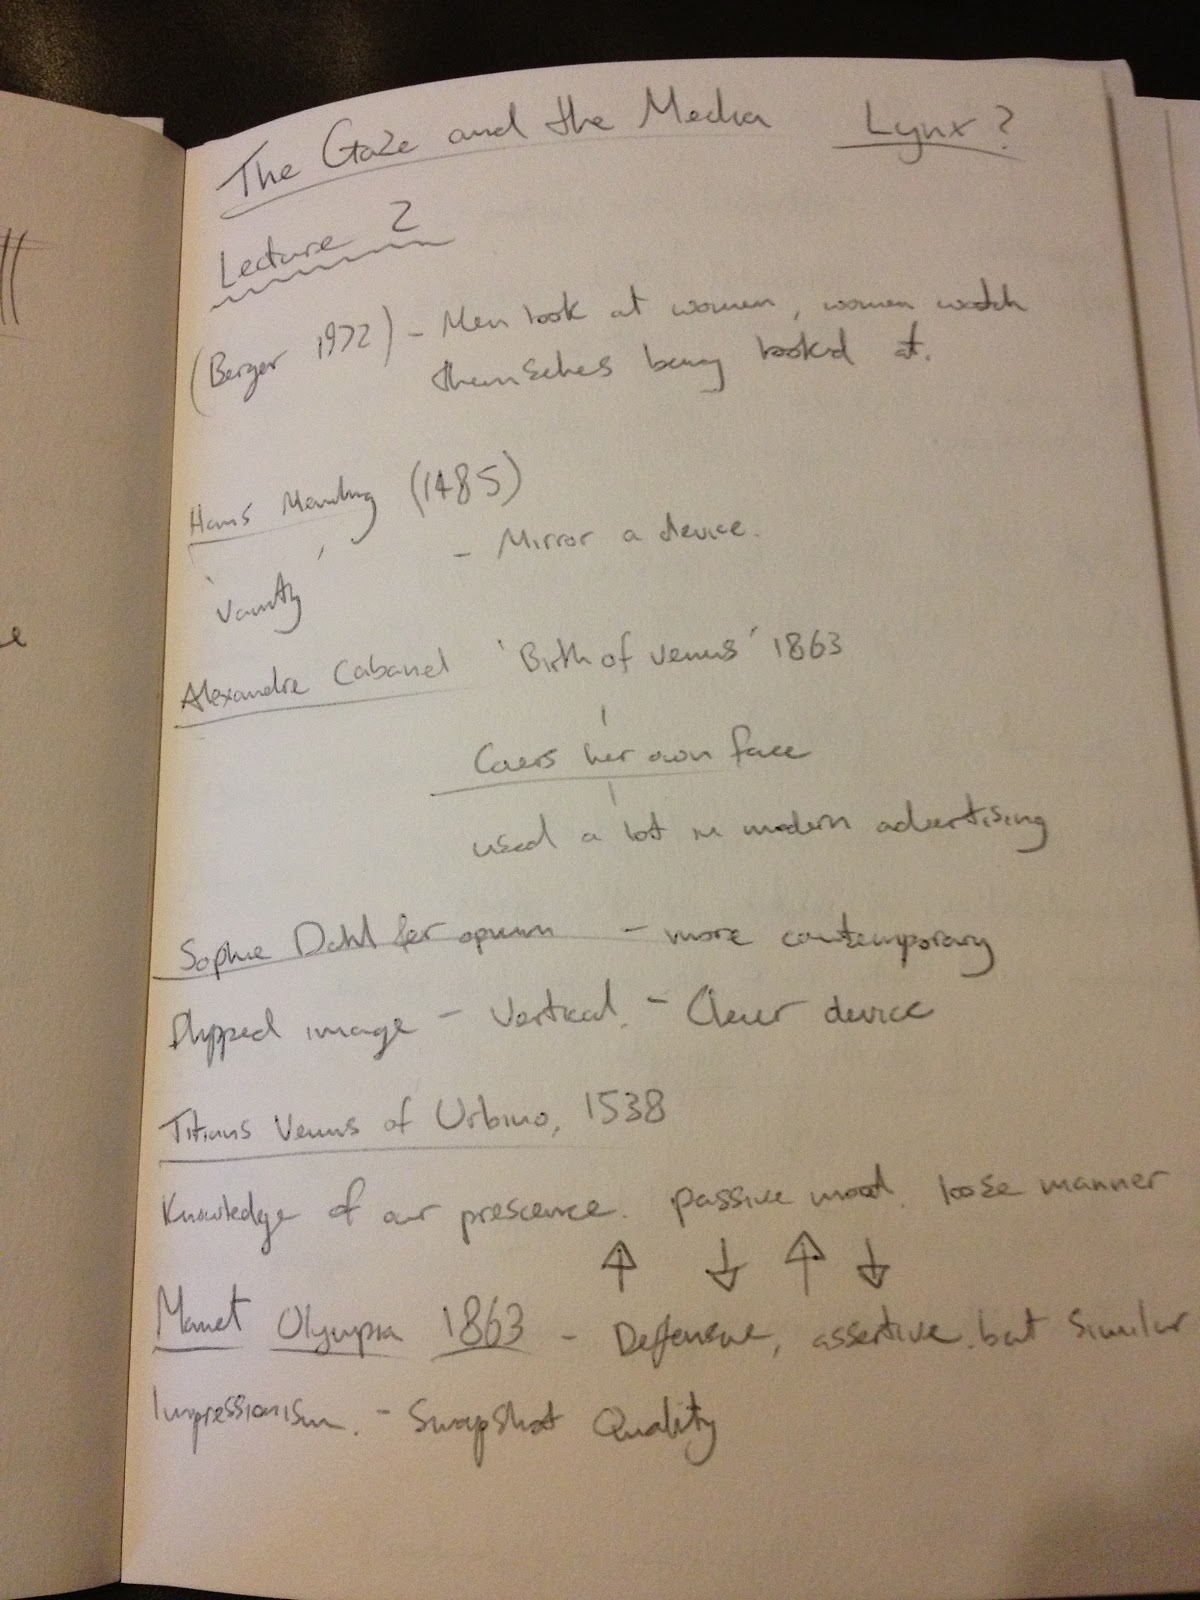 The Gaze and the Media Lynx?
Lecture 2
(Berger 1972) - Men look at women, women watch
themselves being looked at.
Hans (1485)
- Mirror a device.
'Vanity'
Alexandre Cabanel 'Birth of Venus' 1863
Covers her own face
used a lot in modern advertising
Sophie Dahl for opium - more contemporary
flipped image - Vertical. - Clever device
Titians Venus of Urbino, 1538
Knowledge of our prescence. passive mood. loose manner
↑ ↓ ↑ ↓
Manet Olympia 1863 - Deffensive, assertive. but similar
Impressionism. - Snapshot Quality